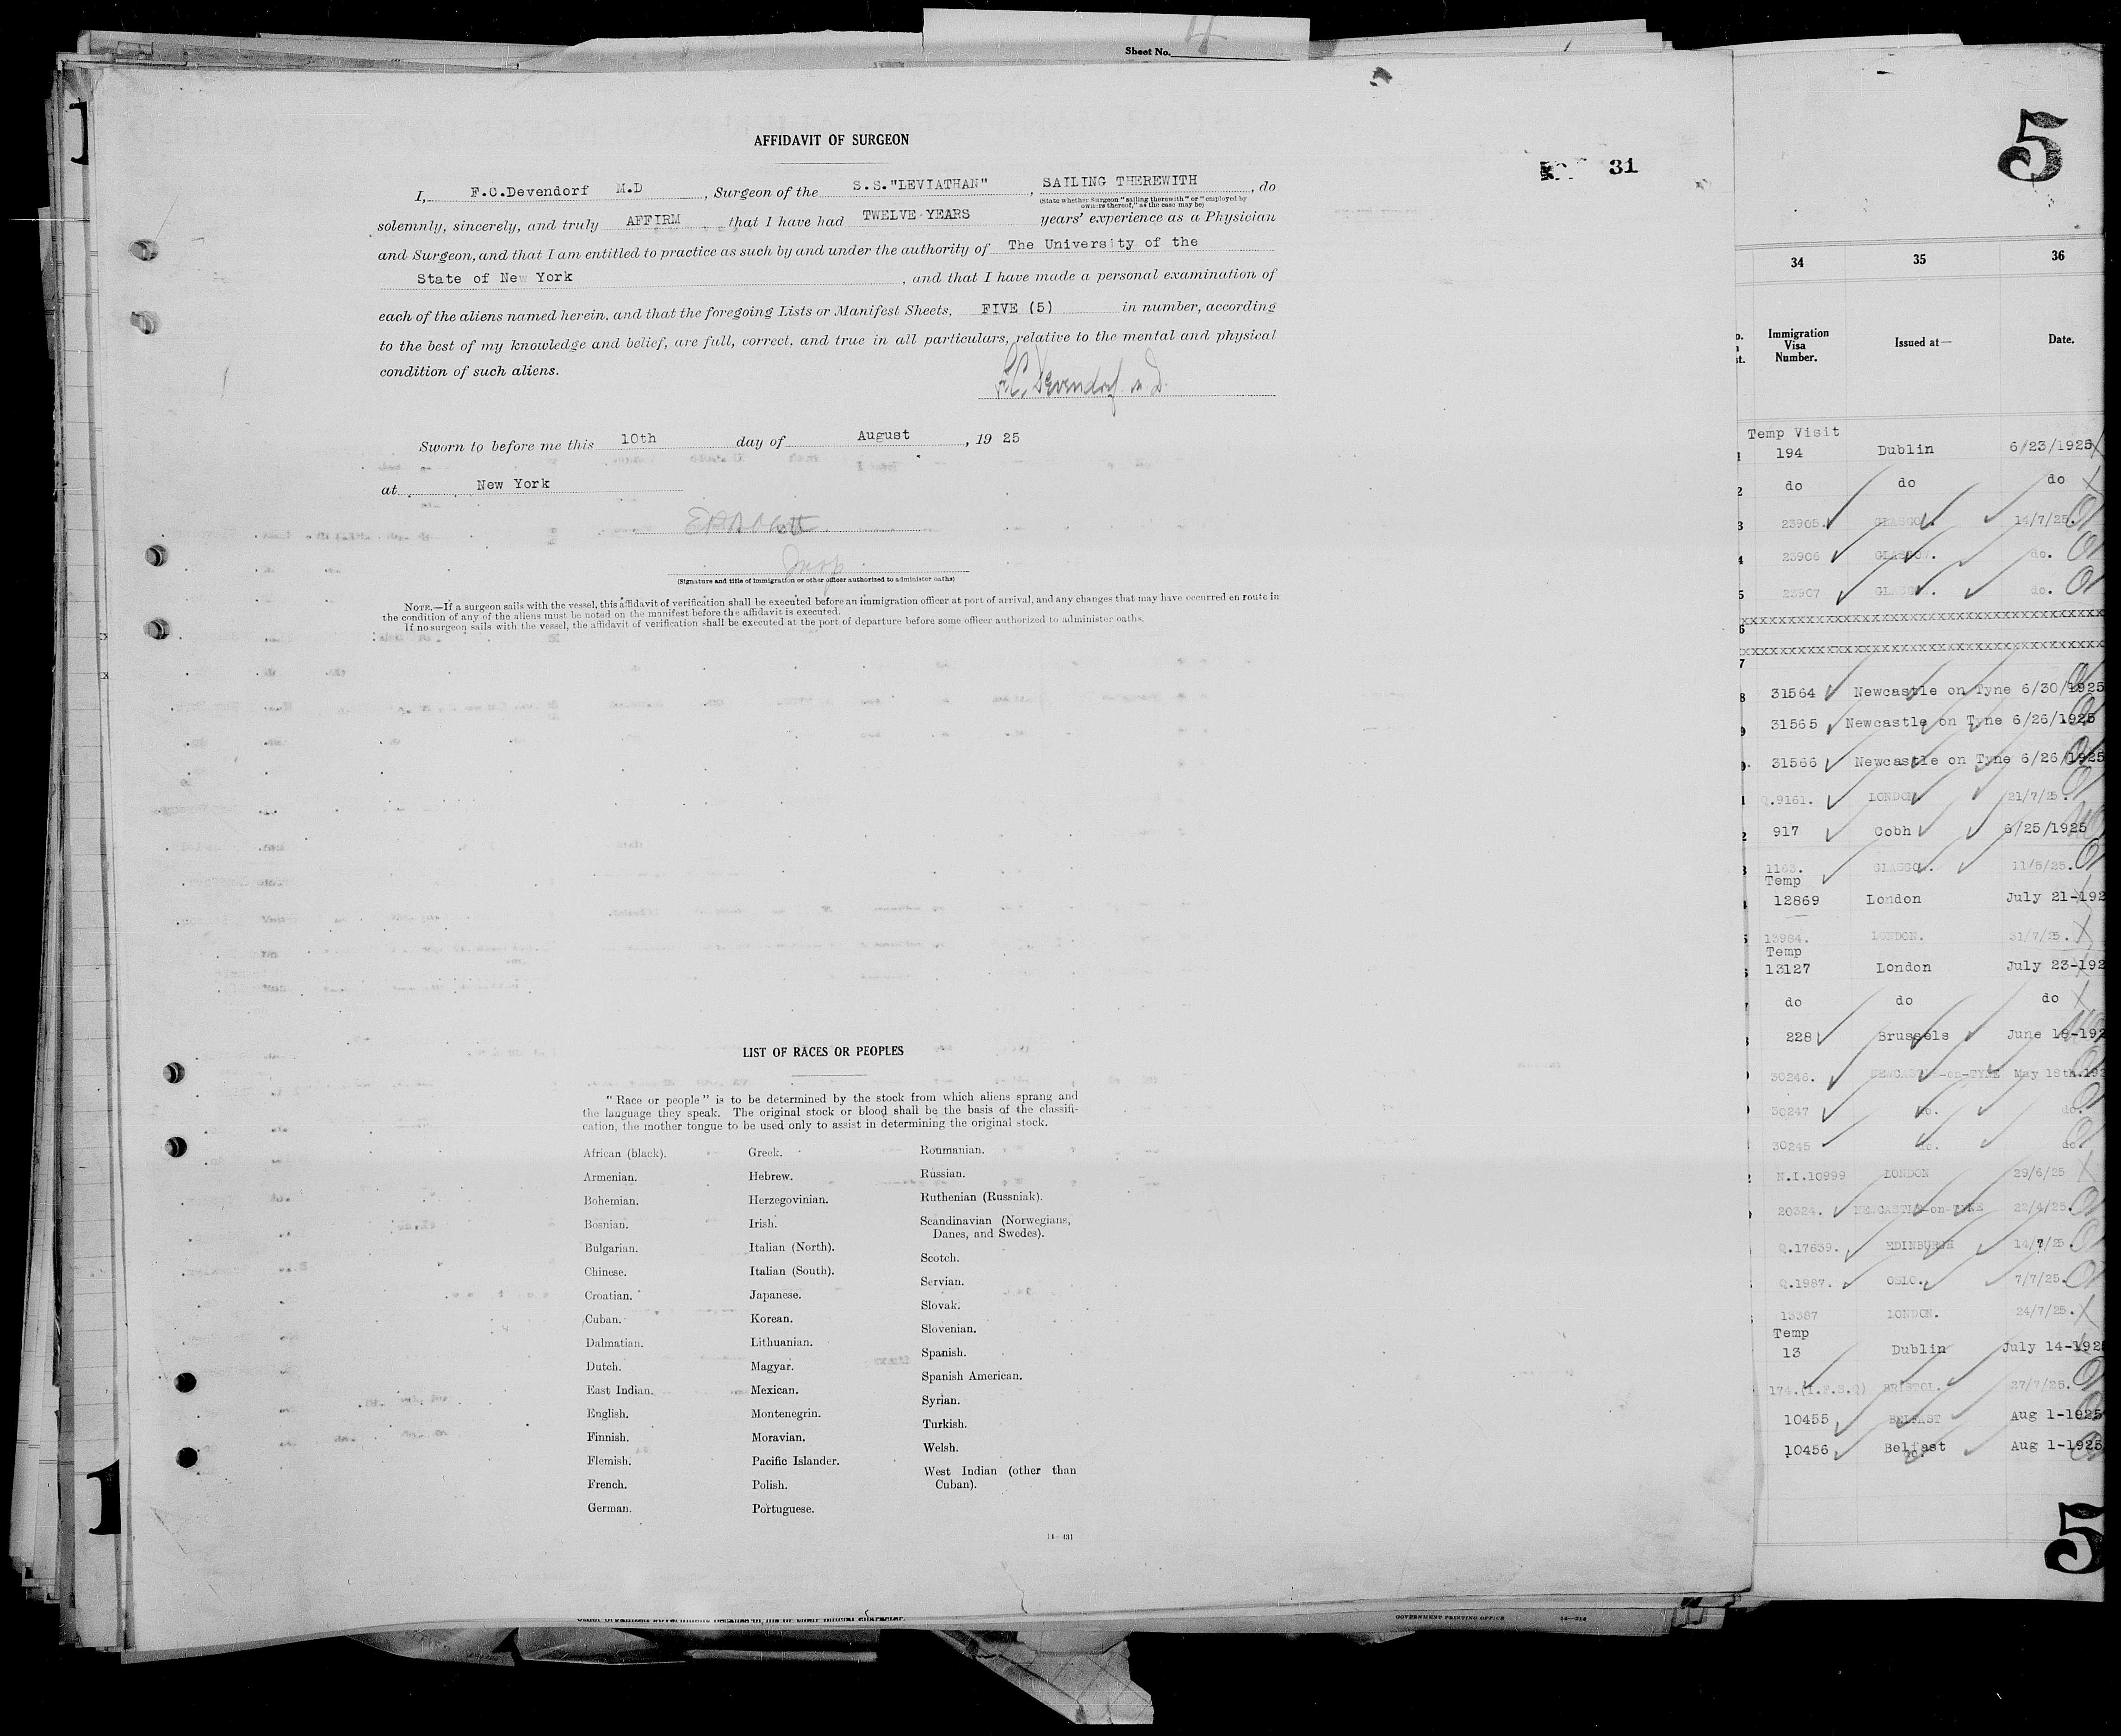 4
Sheet No.
5
AFFIDAVIT OF SURGEON
31
I, F.C.Devendorf M.D , Surgeon of the S.S."LEVIATHAN" , SAILING THEREWITH , do
(State whether Surgeon "sailing therewith" or "employed by
owners thereof," as the case may be)
solemnly, sincerely, and truly AFFIRM that I have had TWELVE YEARS years' experience as a Physician
and Surgeon, and that I am entitled to practice as such by and under the authority of The University of the
State of New York , and that I have made a personal examination of
each of the aliens named herein, and that the foregoing Lists or Manifest Sheets, FIVE (5) in number, according
to the best of my knowledge and belief, are full, correct, and true in all particulars, relative to the mental and physical
condition of such aliens.
F.C. Devendorf M D.
Sworn to before me this 10th day of August , 19 25
at New York
Insp
(Signature and title of immigration or other officer authorized to administer oaths)
NOTE.—If a surgeon sails with the vessel, this affidavit of verification shall be executed before an immigration officer at port of arrival, and any changes that may have occurred en route in
the condition of any of the aliens must be noted on the manifest before the affidavit is executed.
If no surgeon sails with the vessel, the affidavit of verification shall be executed at the port of departure before some officer authorized to administer oaths.
LIST OF RACES OR PEOPLES
"Race or people" is to be determined by the stock from which aliens sprang and
the language they speak. The original stock or blood shall be the basis of the classifi-
cation, the mother tongue to be used only to assist in determining the original stock.
African (black).
Armenian.
Bohemian.
Bosnian.
Bulgarian.
Chinese.
Croatian.
Cuban.
Dalmatian.
Dutch.
East Indian.
English.
Finnish.
Flemish.
French.
German.
Greek.
Hebrew.
Herzegovinian.
Irish.
Italian (North).
Italian (South).
Japanese.
Korean.
Lithuanian.
Magyar.
Mexican.
Montenegrin.
Moravian.
Pacific Islander.
Polish.
Portuguese.
Roumanian.
Russian.
Ruthenian (Russniak).
Scandinavian (Norwegians,
Danes, and Swedes).
Scotch.
Servian.
Slovak.
Slovenian.
Spanish.
Spanish American.
Syrian.
Turkish.
Welsh.
West Indian (other than
Cuban).
14—431
GOVERNMENT PRINTING OFFICE 14—314
34 35 36
Immigration
Visa
Number.
Issued at—
Date.
Temp Visit
194 Dublin 6/23/1925
do do do
23905. GLASGOW. 14/7/25.
23906 GLASGOW. do.
23907 GLASGOW. do.
xxxxxxxxxxxxxxxxxxxxxxxxxxxxxxxxxxxxxxx
xxxxxxxxxxxxxxxxxxxxxxxxxxxxxxxxxxxxxxx
31564 Newcastle on Tyne 6/30/1925
31565 Newcastle on Tyne 6/26/1925
31566 Newcastle on Tyne 6/26/1925
Q.9161. LONDON 21/7/25.
917 Cobh 6/25/1925
1163. GLASGOW. 11/5/25.
Temp
12869 London July 21-192
13984. LONDON. 31/7/25.
Temp
13127 London July 23-192
do do do
228 Brussels June 18-192
30246. NEWCASTLE-on-TYNE May 18th.192
30247 do. do.
30245 do. do.
N.I.10999 LONDON 29/6/25
20324. NEWCASTLE-on-TYNE 22/4/25.
Q.17639. EDINBURGH 14/7/25.
Q.1987. OSLO. 7/7/25.
13387 LONDON. 24/7/25.
Temp
13 Dublin July 14-192
174. BRISTOL. 27/7/25.
10455 BELFAST Aug 1-1925
10456 Belfast Aug 1-1925
5